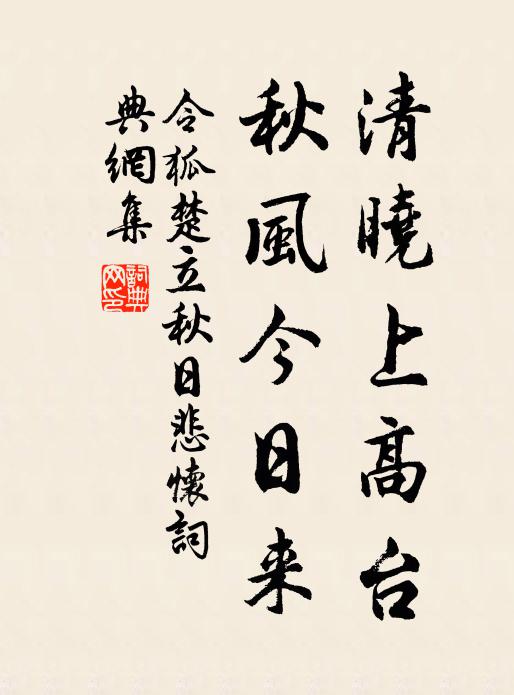 清曉上高台
秋風今日来
令狐楚立秋日悲懷詞
典網集
詞典网印